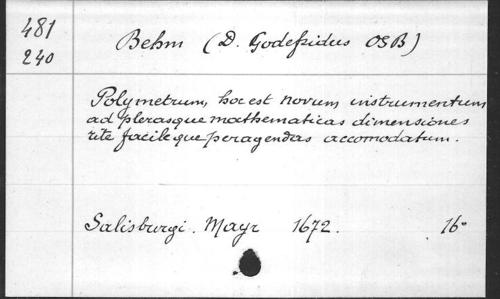 481
240
Behm (D. Godefridus OSB)
Polymetrum, hoc est novum instrumentum
ad plerasque mathematicas dimensiones
rite facileque peragendas accomodatum.
Salisburgi. Mayr 1672. 16°